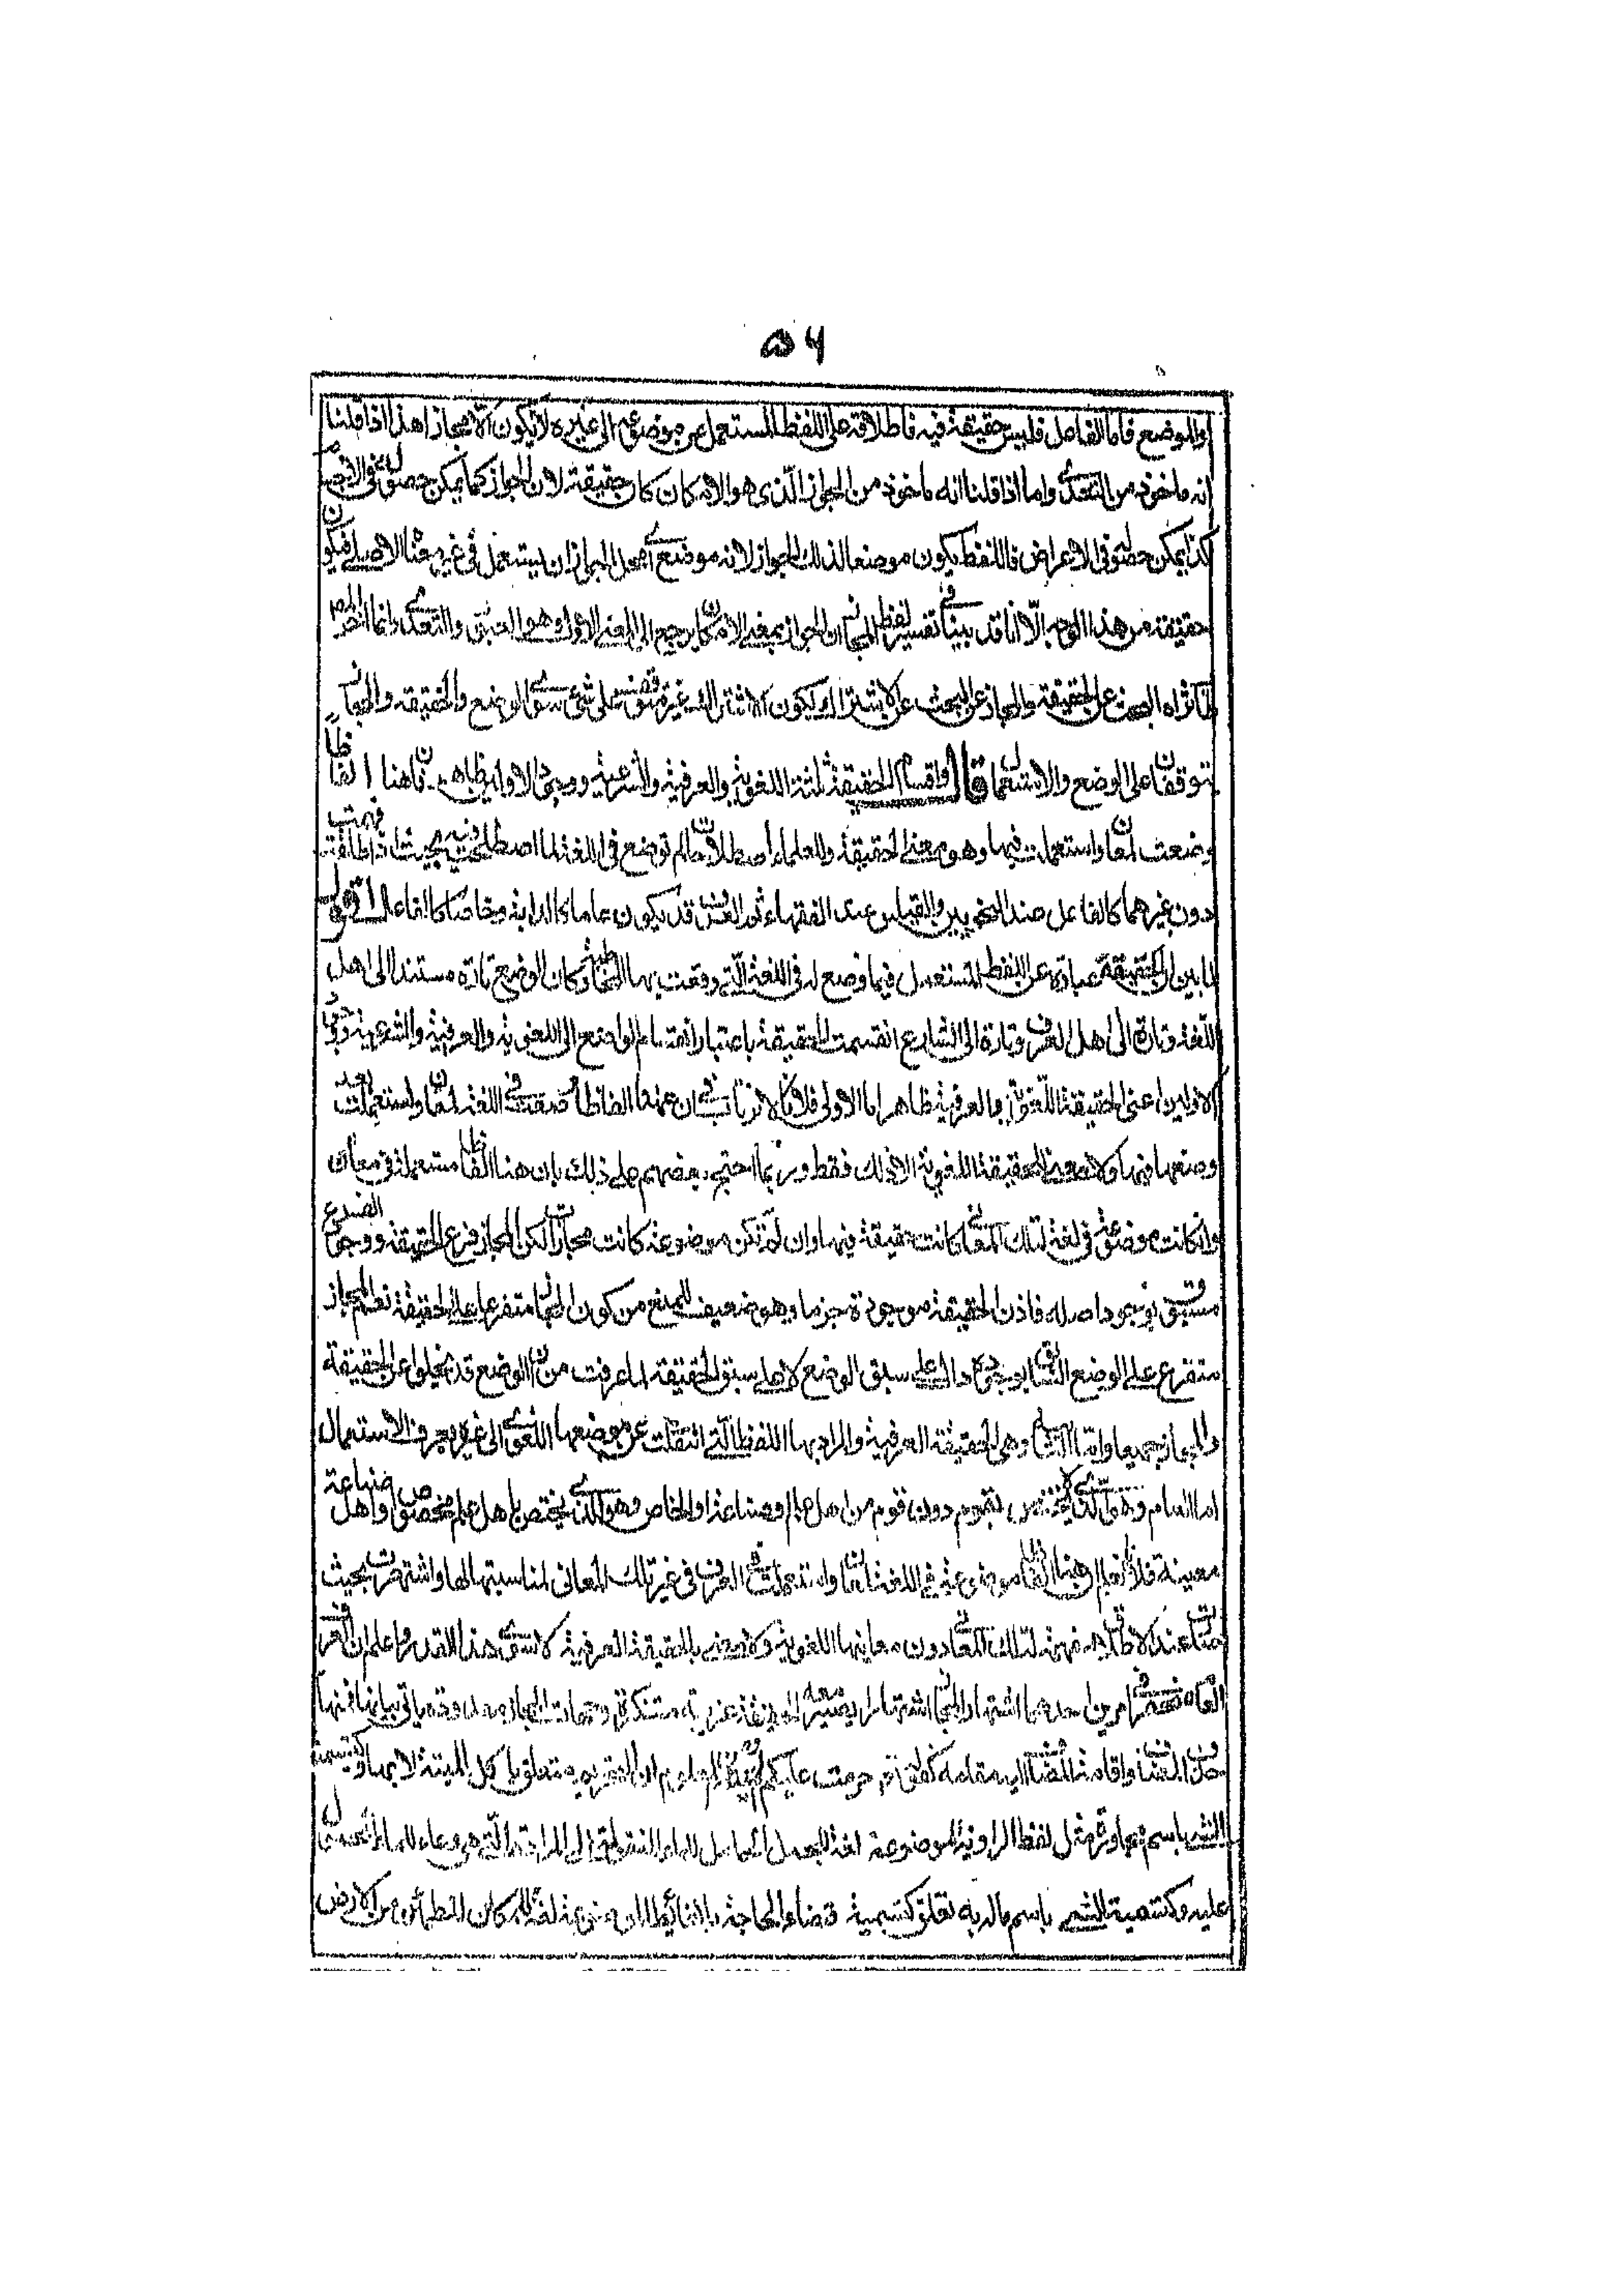 ٥٦
او الموضع فاما الفاعل فليس حقيقة فيه فاطلاقه على اللفظ المستعمل عن موضوعه الى غيره لا يكون الا مجازا هذا اذا قلنا
انه ماخوذ من التعدى واما اذا قلنا انه ماخوذ من الجواز الذى هو الامكان كان حقيقة لان الجواز كما يمكن حصوله فى الاجسام
كذا يمكن حصوله فى الاعراض فاللفظ يكون موضعا لذلك الجواز لانه موضع اهل المجاز ان يستعمل فى غير معناه الاصلى فيكون
حقيقة من هذا الوجه الا انا قد بينا فى تفسير لفظ المجاز ان الجواز بمعنى الامكان يرجع الى المعنى الاول وهو العبور والتعدى وانما اخر المص
البحث عن الحقيقة والمجاز عن البحث عن الاشتراك لكون الاشتراك غير متوقف على شئ سوى الوضع والحقيقة والمجاز
يتوقفان على الوضع والاستعمال قال واقسام الحقيقة ثلثة اللغوية والعرفية والشرعية ووجود الاوليين ظاهر فان هنا الفاظاً
وضعت لمعان واستعملت فيها وهو معنى الحقيقة وللعلماء اصطلاحات لم توضع فى اللغة لما اصطلحت فيه بحيث اذا اطلقت فهمت
دون غيرهما كالفاعل عند النحويين والقياس عند الفقهاء ثم العرف قد يكون عاما كالدابة وخاصا كالفاعل اقول
لما بين ان الحقيقة عبارة عن اللفظ المستعمل فيما وضع له فى اللغة التى وقعت بها المخاطبة وكان الوضع تارة مستندا الى اهل
اللغة وتارة الى اهل العرف وتارة الى الشارع انقسمت الحقيقة باعتبار انقسام الواضع الى اللغوية والعرفية والشرعية ووجود
الاوليين اعنى الحقيقة اللغوية والعرفية ظاهر اما الاولى فلانا لا نرتاب فى ان هنا الفاظا وضعت فى اللغة لمعان واستعملت بعد
وضعها فيها ولا معنى للحقيقة اللغوية الا ذلك فقط وربما احتج بعضهم على ذلك بان هنا الفاظا مستعملة فى معان
وان كانت موضوعة فى لغة لتلك المعانى كانت حقيقة فيها وان لم تكن موضوعة كانت مجازات لكن المجاز فرع الحقيقة ووجود الفرع
مسبوق بوجود اصله فاذن الحقيقة موجودة جزما وهو ضعيف للمنع من كون المجاز متفرعا على الحقيقة نعم المجاز
متفرع على الوضع السابق فوجوده دال على سبق الوضع لا على سبق الحقيقة لما عرفت من ان الوضع قد يخلو عن الحقيقة
والمجاز جميعا واما الثانية وهى الحقيقة العرفية والمراد بها اللفظة التى انتقلت عن موضعها اللغوى الى غيره بعرف الاستعمال
اما العام وهو الذى لا يختص بقوم دون قوم من اهل علم وصناعة او الخاص وهو الذى يختص باهل علم مخصوص او اهل صناعة
معينة فلانا نعلم ان هنا الفاظا موضوعة فى اللغة لمعان واستعملت فى العرف فى غير تلك المعانى لمناسبتها لها واشتهرت بحيث
صارت عند الاطلاق مفهمة لتلك المعانى دون معانيها اللغوية ولا معنى بالحقيقة العرفية سوى هذا القدر واعلم ان العرف
العام منحصر فى امرين احدهما اشتهار المجاز اشتهارا يصير معه الحقيقة غير مستنكرة وجهات المجاز متعددة ياتى بيانها فمنها
حذف المضاف واقامة المضاف اليه مقامه كقوله تع حرمت عليكم الميتة المعلوم ان التحريم متعلق باكل الميتة لا بها وكتسمية
الشئ باسم مجاوره مثل لفظ الراوية الموضوعة لغة للجمل الحامل للماء المنقولة الى المزادة التى هى وعاء للماء المحمول
عليه وكتسمية الشئ باسم ما له به تعلق كتسمية قضاء الحاجة بالغائط الموضوعة لغة للمكان المطمئن من الارض